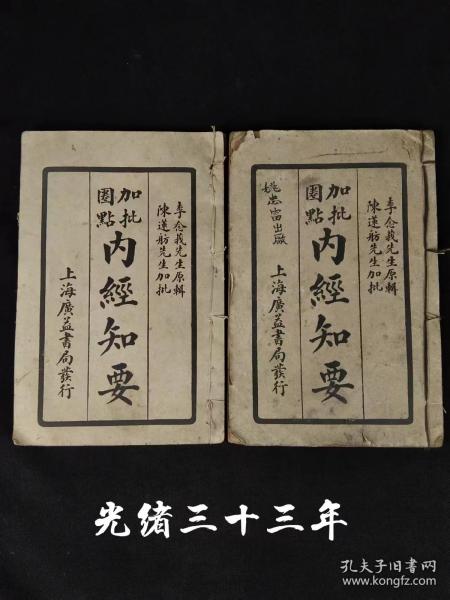 李念莪先生原輯
陳蓮舫先生加批
加批
圈點
內經知要
上海廣益書局發行
李念莪先生原輯
陳蓮舫先生加批
加批
圈點
內經知要
上海廣益書局發行
光绪三十三年
孔夫子旧书网
www.kongfz.com